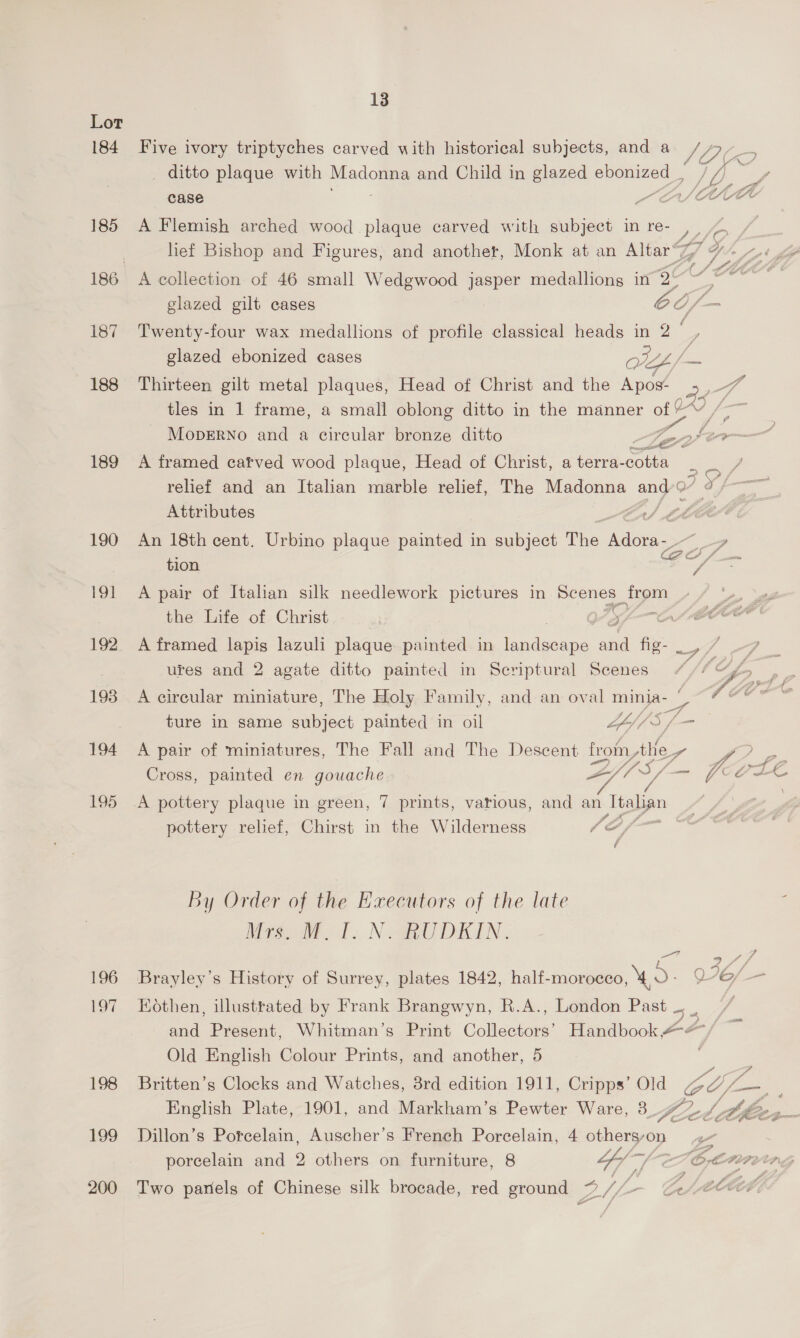 13
Lot
184 Five ivory triptyches carved with historical subjects, and a
ditto plaque with Madonna and Child in glazed ebonized
case
185 A Flemish arched wood plaque carved with subject in re-
lief Bishop and Figures, and another, Monk at an Altar
186 A collection of 46 small Wedgwood jasper medallions in 2
glazed gilt cases 60/-
187 Twenty-four wax medallions of profile classical heads in 2
glazed ebonized cases
188 Thirteen gilt metal plaques, Head of Christ and the Apos-
tles in 1 frame, a small oblong ditto in the manner of
MODERNO and a circular bronze ditto
189 A framed carved wood plaque, Head of Christ, a terra-cotta
relief and an Italian marble relief, The Madonna and
Attributes
190 An 18th cent. Urbino plaque painted in subject The Adora-
tion
191 A pair of Italian silk needlework pictures in Scenes from
the Life of Christ
192 A framed lapis lazuli plaque painted in landscape and fig-
ures and 2 agate ditto painted in Scriptural Scenes
193 A circular miniature, The Holy Family, and an oval minia-
ture in same subject painted in oil
194 A pair of miniatures, The Fall and The Descent from the
Cross, painted en gouache
195 A pottery plaque in green, 7 prints, various, and an Italian
pottery relief, Chirst in the Wilderness
By Order of the Executors of the late
Mrs. M. I. N. RUDKIN.
196 Brayley's History of Surrey, plates 1842, half-morocco,
197 Eöthen, illustrated by Frank Brangwyn, R.A., London Past
and Present, Whitman's Print Collectors' Handbook
Old English Colour Prints, and another, 5
198 Britten's Clocks and Watches, 3rd edition 1911, Cripps' Old
English Plate, 1901, and Markham's Pewter Ware, 3
199 Dillon's Porcelain, Auscher's French Porcelain, 4 others on
porcelain and 2 others on furniture, 8
200 Two panels of Chinese silk brocade, red ground